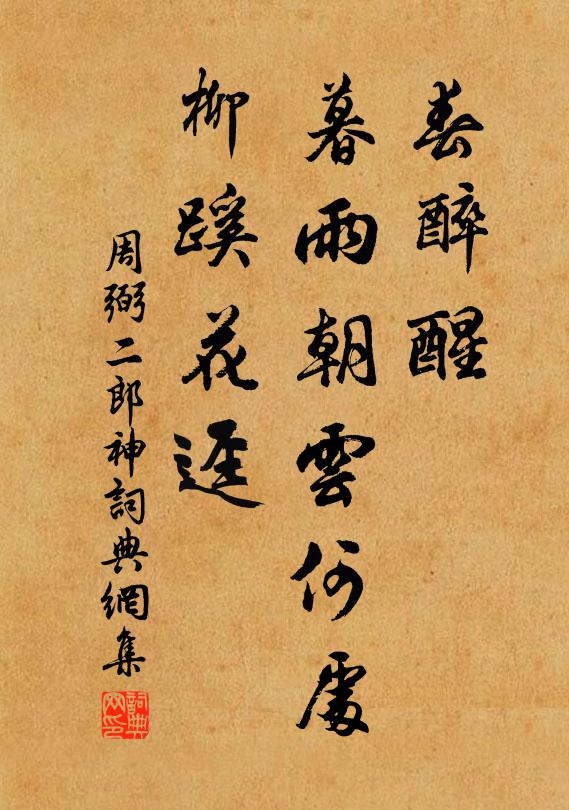 春醉醒
暮雨朝雲何處
柳蹊花逕
周弼二郎神詞典網集
詞典网印